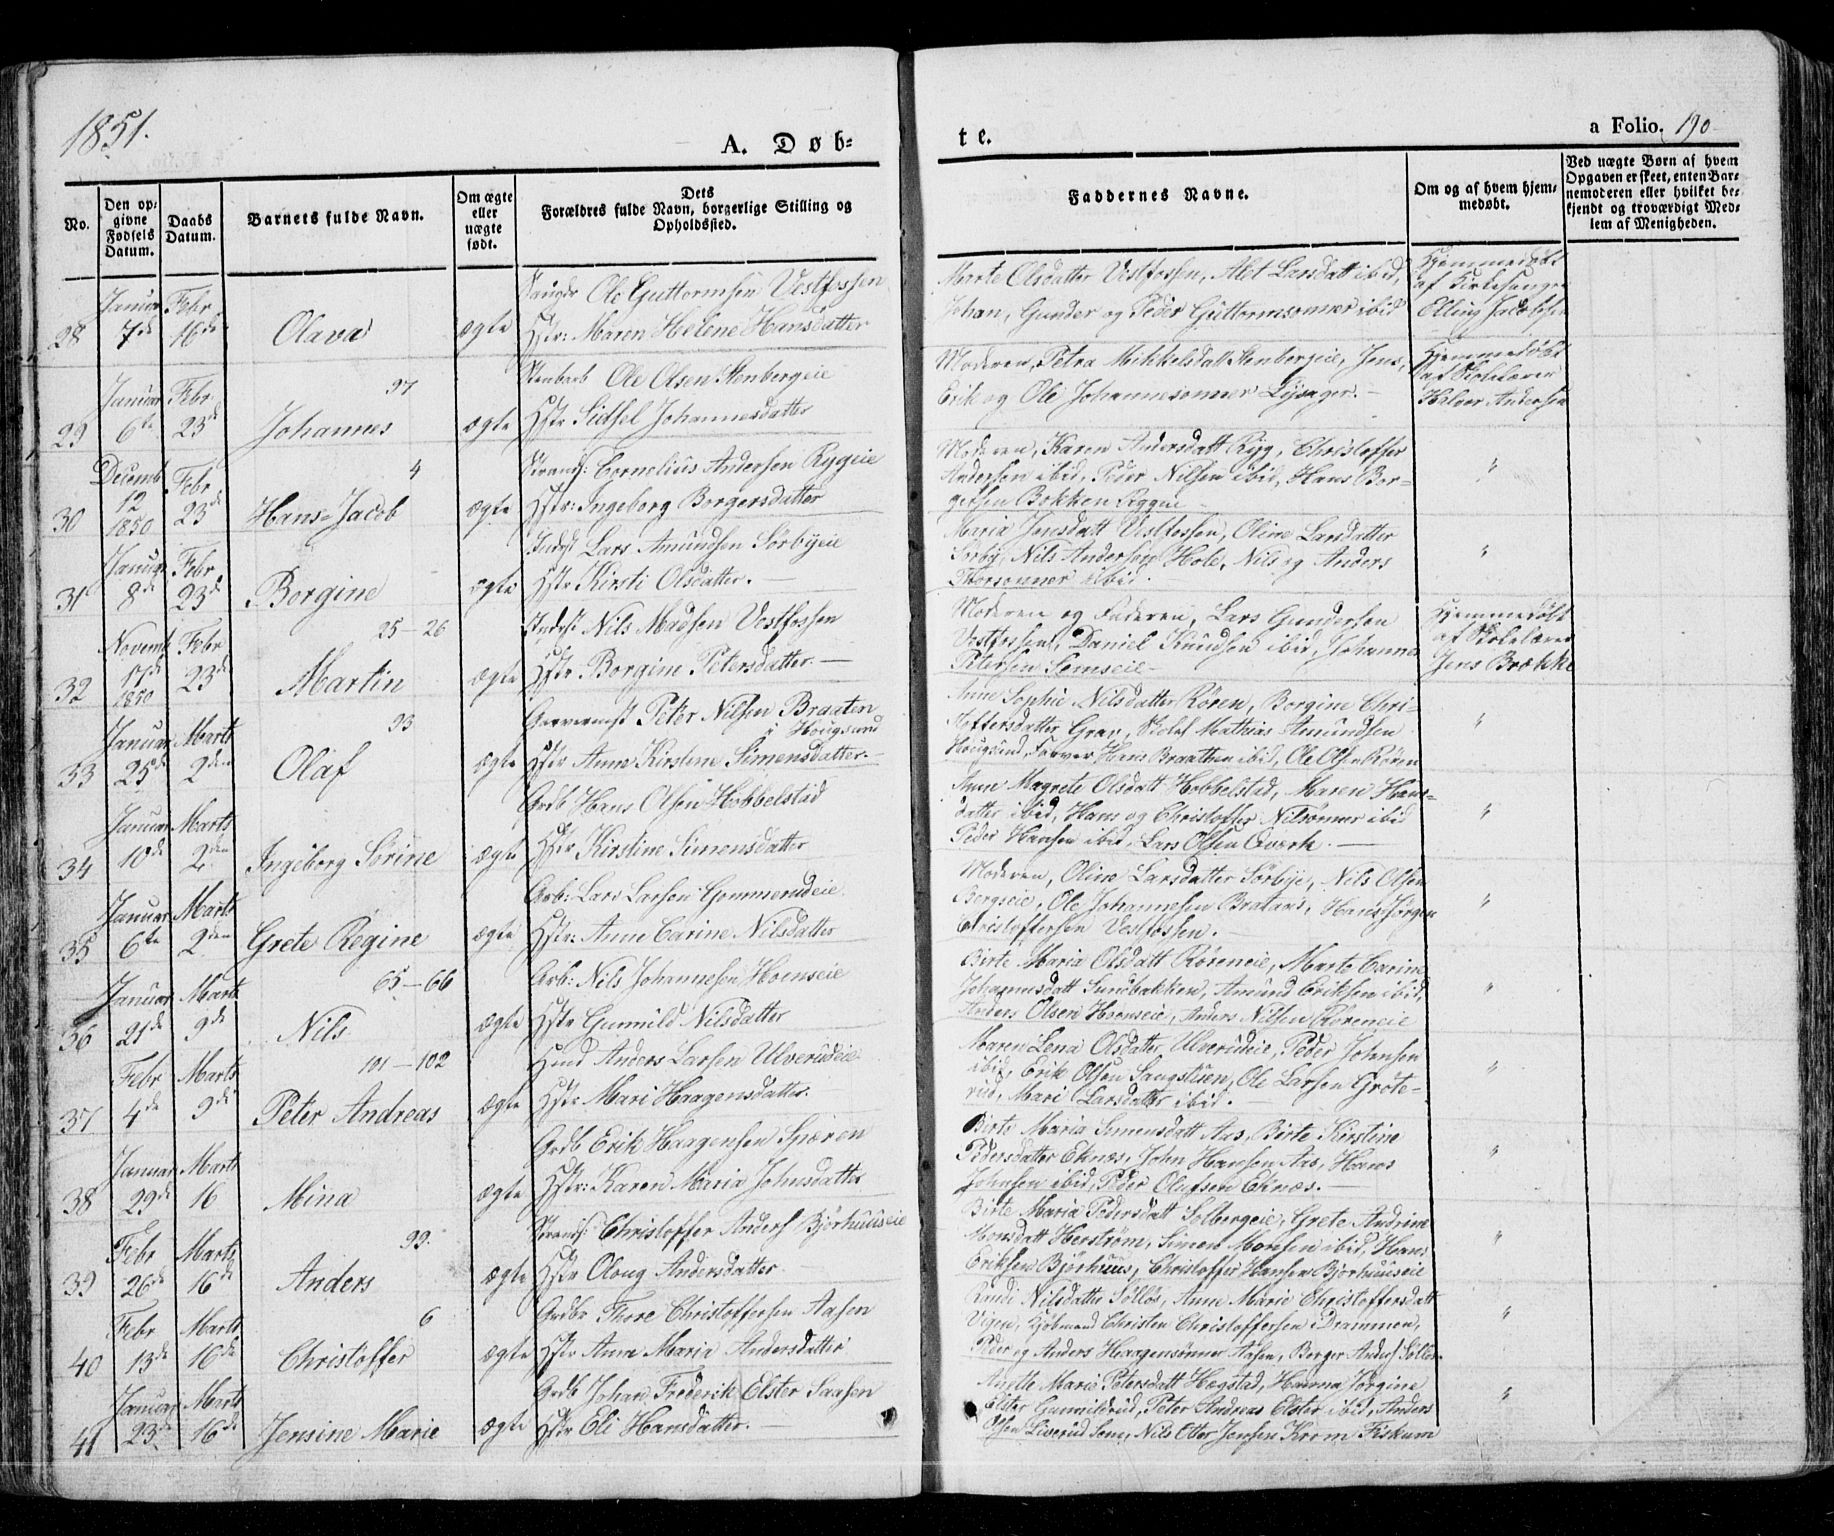 1851.
A. Døb-
te.
a Folio. 190
No.
Den op-
givne
Fødsels
Datum.
Daabs
Datum.
Barnets fulde Navn.
Om ægte
eller
uægte
født.
Dets
Forældres fulde Navn, borgerlige Stilling og
Opholdssted.
Faddernes Navne.
Om og af hvem hjem-
medøbt.
Ved uægte Børn af hvem
Opgaven er skeet, enten Bar-
nemoderen eller hvilket be-
kjendt og troværdigt Med-
lem af Menigheden.
28
Januar
7de
Febr
16de
Olava
ægte
Ole Guttormsen Vestfossen
Hstr: Maren Helene Hansdatter
Marte Olsdatter Vestfossen, Alet Larsdatt ibid,
Johan, Gunder og Peder Guttormsønner ibid
Hjemmedøbt
af Kirkesanger
Elling Jacobsen
29
Januar
6te
Febr
23de
97
Johannes
ægte
Ole Olsen Stenbergeie
Hstr Sidsel Johannesdatter
Moderen, Petra Mikkelsdatt Stenbergeie, Jens,
Erik og Ole Johannesønner Lysager. –
Hjemmedøbt
af Skolelærer
Halvor Andersen
30
Decemb
12
1850
Febr
23de
4
Hans Jacob
ægte
Strands: Cornelius Andersen Rygeie
Hstr: Ingeborg Borgersdatter
Moderen, Karen Andersdatt Ryg, Christoffer
Andersen ibid, Peder Nilsen ibid, Hans Bor-
gersen Bakken
"
31
Januar
8de
Febr
23de
Borgine
ægte
Inderst Lars Amundsen Sørbyeie
Hstr Kirsti Olsdatter. –
Maria Jensdatt Vestfossen, Oline Larsdatter
Sørby, Nils Andersen Hole, Nils og Anders
Thorsønner ibid
"
32
Novemb
17de
1850
Febr
23de
25–26
Martin
ægte
Inderst Nils Madsen Vestfossen
Hstr Borgine Petersdatter. –
Moderen og Faderen, Lars Gundersen
Vestfossen, Daniel Knudsen ibid, Johannes
Petersen Semseie –
Hjemmedøbt
af Skolelærer
Jens Brække
33
Januar
25de
Marts
2den
93
Olaf
ægte
Garverm: Peter Nilsen Braaten
i Hougsund
Hstr Anne Kirstine Simensdatter. –
Anne Sophie Nilsdatter Røren, Borgine Chri-
stoffersdatter Grav, Skolel Mathias Amundsen
Hougsund, Farver Hans Braathen ibid, Ole Olsen Røren
"
34
Januar
10de
Marts
2den
Ingeborg Sørine
ægte
Grdb Hans Olsen Hobbelstad
Hstr Kirstine Simensdatter
Anne Magrete Olsdatt Hobbelstad, Maren Hans-
datter ibid, Hans og Christoffer Nilsønner ibid
Peder Hansen ibid, Lars Olsen Qværk. –
"
35
Januar
6te
Marts
2den
Grete Regine
ægte
Arb: Lars Larsen Gommerudeie
Hstr: Anne Carine Nilsdatter
Moderen, Oline Larsdatter Sørbye, Nils Olsen
Bergseie, Ole Johannesen Brataas, Hans Jørgen
Christoffersen Vestfossen.
"
36
Januar
21de
Marts
9de
65–66
Nils
ægte
Arb: Nils Johannesen Hoenseie
Hstr Gunnild Nilsdatter
Birte Maria Olsdatt Røreneie, Marte Carine
Johannesdatt Sundbakken, Amund Eriksen ibid,
Anders Olsen Hoenseie, Anders Nilsen Røreneie
"
37
Febr
4de
Marts
9de
101–102
Peter Andreas
ægte
Hmd Anders Larsen Ulverudeie
Hstr Mari Haagensdatter.
Maren Lena Olsdatter Ulverudeie, Peder Johnsen
ibid, Erik Olsen Langstuen, Ole Larsen Grote-
rud, Mari Larsdatter ibid. –
"
38
Januar
29de
Marts
16
Mina
ægte
Grdb Erik Haagensen Spæren
Hstr: Karen Maria Johnsdatter
Birte Maria Simensdatt Aas, Birte Kirstine
Pedersdatter Eknæs, John Hansen Aas, Hans
Johnsen ibid, Peder Olufsen Eknæs. –
"
39
Febr
26de
Marts
16de
99.
Anders
ægte
Strands: Christoffer Anders Bjørhuuseie
Hstr Oloug Andersdatter
Birte Maria Pedersdatt Solbergeie, Grete Andrine
Monsdatt Herstrøm, Simen Monsen ibid, Hans
Eriksen Bjørhuus, Christoffer Hansen Bjørhuuseie
"
40
Febr
13de
Marts
16de
6
Christoffer
ægte
Grdbr Thore Christoffersen Aasen
Hstr Anne Maria Andersdatter
Nilsdatter Sølløs, Anne Marie Christoffersdatt
Vigen, Kjøbmand Christen Christoffersen i Drammen,
Peder og Anders Haagensønner Aasen, Borger Anders Sølløs
"
41
Januar
23de
Marts
16de
Jensine Marie
ægte
Grdb Johan Frederik Elster Saasen
Hstr Eli Hansdatter. –
Anette Marie Petersdatt Hægstad, Hanna Jørgine
Elster Gunnildrud, Peter Andreas Elster ibid, Anders
Olsen Liverud Sem, Nils Otter Jensen Krom Fiskum
"